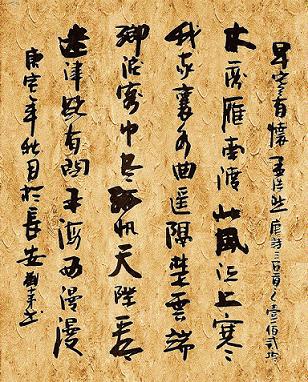 早寒有懷 孟浩然 唐詩三百首之壹佰貳
木落雁南渡北風江上寒
我家襄水曲遥隔楚雲端
鄉淚客中盡孤帆天際看
迷津欲有問平海夕漫漫
庚寅年秋月於長安書